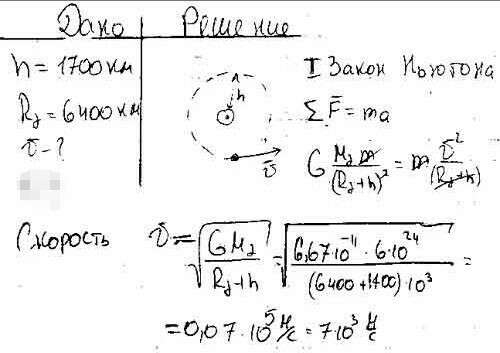 Дано Решение
h = 1700 км
R₃ = 6400 км
v̄ - ?
h
v̄
I Закон Ньютона
ΣF̄ = ma
G M₃ m / (R₃ + h)² = m v̄² / (R₃ + h)
Скорость v̄ = √(G M₃ / (R₃ + h)) = √(6,67·10⁻¹¹ · 6·10²⁴ / ((6400 + 1700)·10³)) =
= 0,07·10⁵ м/с = 7·10³ м/с